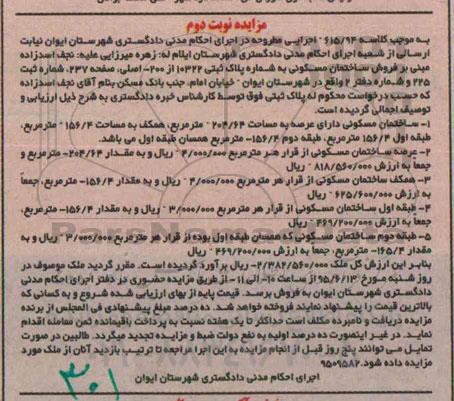 مزایده نوبت دوم
به موجب کلاسه ۶۱۵/۹۴ اجرایی مطروحه در اجرای احکام مدنی دادگستری شهرستان ایوان نیابت
ارسالی از شعبه اجرای احکام مدنی دادگستری شهرستان ایلام له: زهره میرزایی علیه: نجف اسدزاده
مبنی بر فروش ساختمان مسکونی به شماره پلاک ثبتی ۱۰۳۲۲ از ۲۰۰- اصلی، صفحه ۲۳۷، شماره ثبت
۲۲۵ و شماره دفتر ۲ واقع در شهرستان ایوان - خیابان امام، جنب بانک مسکن بنام آقای نجف اسدزاده
که حسب درخواست محکوم له پلاک ثبتی فوق توسط کارشناس خبره دادگستری به شرح ذیل ارزیابی و
توصیف اجمالی گردیده است.
۱- ساختمان مسکونی دارای عرصه به مساحت ۲۰۴/۶۴ مترمربع، همکف به مساحت ۱۵۶/۴ مترمربع،
طبقه اول ۱۵۶/۴ مترمربع، طبقه دوم ۱۵۶/۴- مترمربع همسان طبقه اول می باشد.
۲- عرصه ساختمان مسکونی از قرار هر مترمربع ۴/۰۰۰/۰۰۰ ریال و به مقدار ۲۰۴/۶۴- مترمربع و
جمعاً به ارزش ۸۱۸/۵۶۰/۰۰۰ ریال
۳- همکف ساختمان مسکونی از قرار هر مترمربع ۴/۰۰۰/۰۰۰ ریال و به مقدار ۱۵۶/۴- مترمربع، جمعاً
به ارزش ۶۲۵/۶۰۰/۰۰۰ ریال
۴- طبقه اول ساختمان مسکونی از قرار هر مترمربع ۳/۰۰۰/۰۰۰ ریال و به مقدار ۱۵۶/۴- مترمربع،
جمعاً به ارزش ۴۶۹/۲۰۰/۰۰۰ ریال
۵- طبقه دوم ساختمان مسکونی که همسان طبقه اول بوده از قرار هر مترمربع ۳/۰۰۰/۰۰۰ ریال و به
مقدار ۱۶۵/۴- مترمربع، جمعاً به ارزش ۴۶۹/۲۰۰/۰۰۰ ریال
بنابر این ارزش کل ملک ۲/۳۸۲/۵۶۰/۰۰۰- ریال برآورد گردیده است. مقرر گردید ملک موصوف در
روز شنبه مورخ ۹۵/۶/۱۳ از ساعت ۱۰- الی ۱۱- از طریق مزایده حضوری در دفتر اجرای احکام مدنی
دادگستری شهرستان ایوان به فروش برسد. قیمت پایه از بهای ارزیابی شده شروع و به کسانی که
بالاترین قیمت را پیشنهاد نمایند فروخته خواهد شد. ده درصد مبلغ پیشنهادی فی المجلس از برنده
مزایده دریافت و نامبرده مکلف است حداکثر تا یک هفته نسبت به پرداخت باقیمانده ثمن معامله اقدام
نماید. در غیر اینصورت ده درصد اولیه به نفع دولت ضبط و مزایده تجدید میگردد. طالبین در صورت
تمایل می توانند پنج روز قبل از انجام مزایده به این اجرا مراجعه تا ترتیب بازدید آنان از ملک مورد
مزایده داده شود. ۹۵۰۹۵۸۲
اجرای احکام مدنی دادگستری شهرستان ایوان
۳۰۱